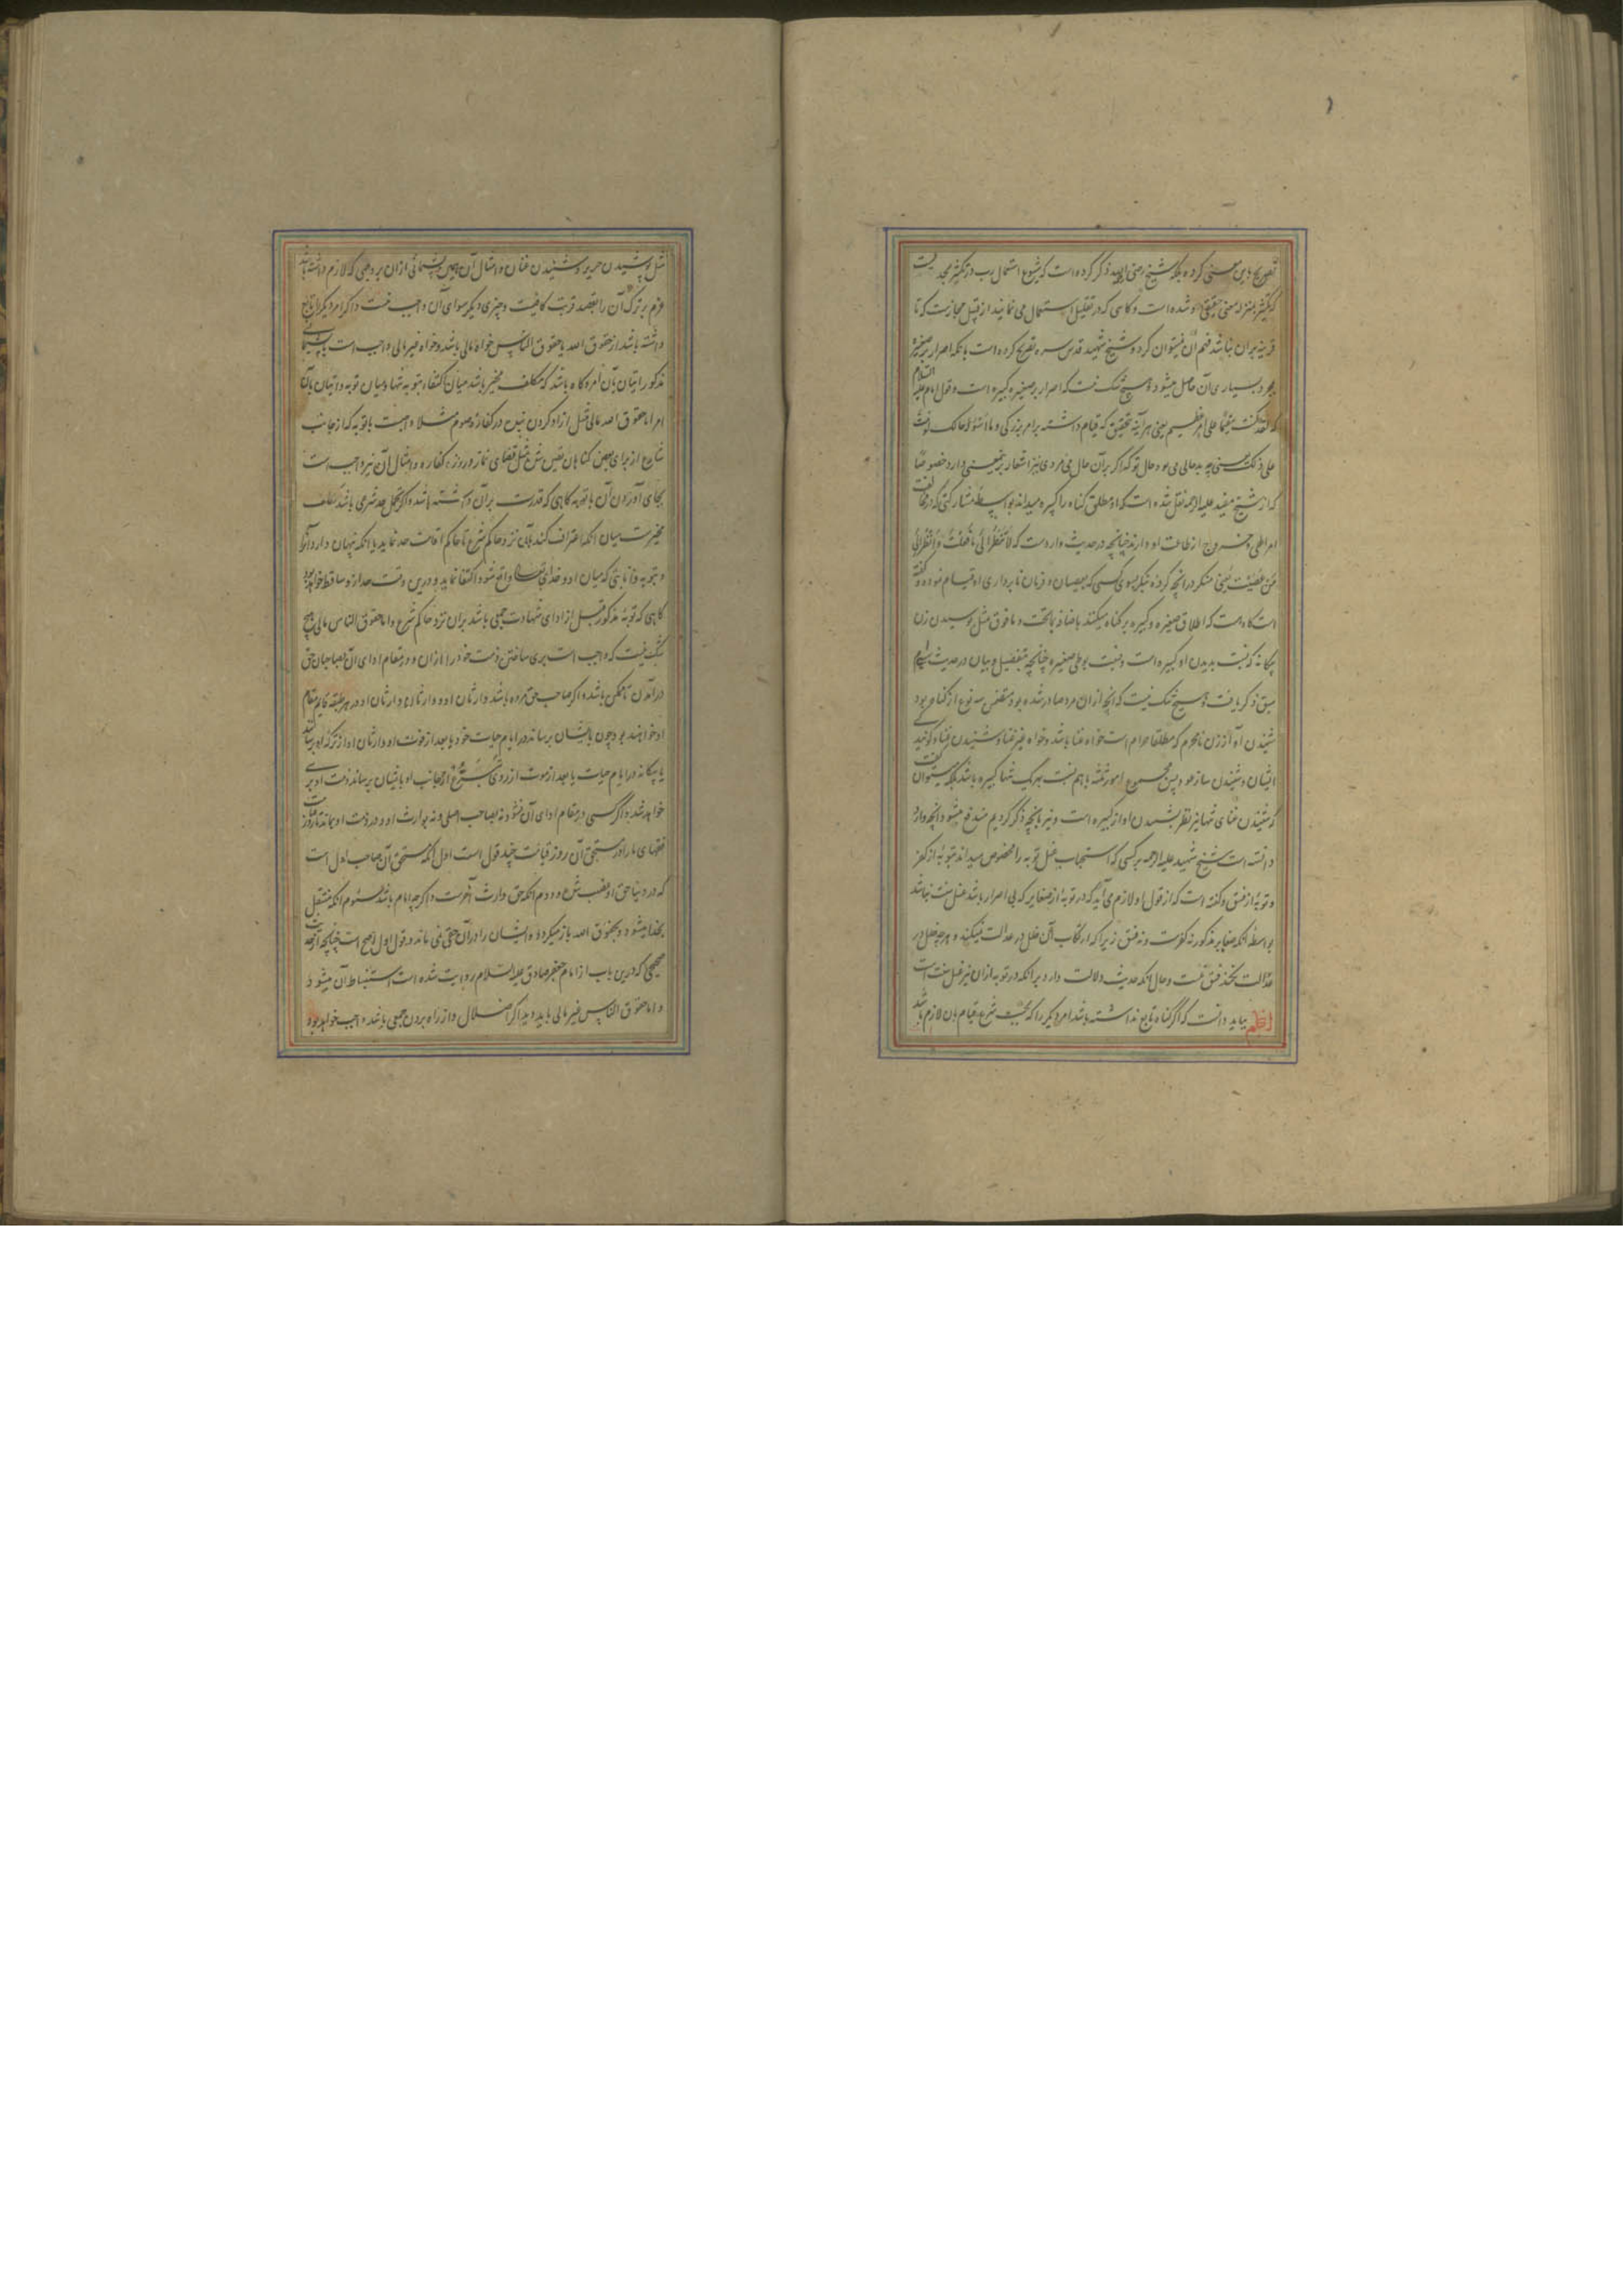 تصریح باین معنی کرده بلکه شیخ رضی الله ذکر کرده است که شیوع استعمال رب در تکثیر بحدیست
که تکثیر بمنزله معنی حقیقی او شده است و کاهی که در تقلیل استعمال می نمایند از قبیل مجازیست که تا
قرینه بران نباشد فهم آن نمیتوان کرد و شیخ شهید قدس سره تصریح کرده است بانکه اصرار بر صغیره
بمجرد بسیاری آن حاصل میشود و هیچ شک نیست که اصرار بر صغیره کبیره است و قول امام علیه السلام
که لقد کنت مقیما علی امر عظیم یعنی هر آینه بتحقیق که قیام داشته بر امر بزرکی و ما اسوء حالک لو مت
علی ذلک یعنی چه بدحالی می بود حال تو که اکر برآن حال می مردی نیز اشعار بر این معنی دارد خصوصا
که از شیخ مفید علیه الرحمه نقل شده است که او مطلق کناه را کبیره میداند بواسطه مشارکتی که در مخالفت
امر الهی و خروج از طاعت او دارند چنانچه در حدیث وارد است که لا تنظر الی ما فعلت و انظر الی
من عصیت یعنی منکر در انچه کرده بنکر بسوی کسی که بعصیان و فرمان نابرداری او قیام نموده و کفته
است کاه هست که اطلاق صغیره و کبیره بر کناه میکنند باضافه بماتحت و مافوق مثل بوسیدن زن
بیکانه که نسبت بدیدن او کبیره است و نسبت بوطی صغیره چنانچه بتفصیل و بیان در حدیث سیام
سبق ذکر یافت و هیچ شک نیست که انچه از ان مرد صادر شده بود متضمن سه نوع از کناه بود
شنیدن آواز زن نامحرم که مطلقا حرام است خواه غنا باشد و خواه غیر غنا و شنیدن غناء کویند کی
ایشان و شنیدن ساز عود پس مجموع امور ثلثه باهم نسبت بهریک تنها کبیره باشد بلکه میتوان کفت
که شنیدن غنای تنها نیز نظر بشنیدن اواز کبیره است و نیز بانچه ذکر کردیم مندفع میشود انچه وارد
دانسته است شیخ شهید علیه الرحمه بر کسی که استحباب غسل توبه را مخصوص میداند بتوبه از کفر
و توبه از فسق و کفته است که از قول او لازم می آید که در توبه از صغایر که بی اصرار باشد غسل سنت نباشد
بواسطه انکه صغایر مذکور نه کفرست و نه فسق زیرا که ارتکاب آن خلل در عدالت نمیکند و هرچه خلل در
عدالت نکند فسق نیست و حال انکه حدیث دلالت دارد برانکه در توبه از ان نیز غسل سنت است
بباید دانست که اکر کناه تابع نداشته باشد امر دیکر را که بحسب شرع قیام بان لازم باشد
مثل پوشیدن حریر و شنیدن غنا و امثال آن همین پشیمانی از ان بر وجهی که لازم داشته باشد
عزم بر ترک آن را بقصد قربت کافیست و چیزی دیکر سوای آن واجب نیست و اکر امر دیکر را تابع
داشته باشد از حقوق الله یا حقوق الناس خواه مالی باشد و خواه غیر مالی واجب است با پشیمانی
مذکور اتیان بآن امر و کاه باشد که مکلف مخیر باشد میان اکتفاء بتوبه تنها و میان توبه و اتیان بآن
امر اما حقوق الله مالی مثل ازاد کردن بنده در کفاره صوم مثلا واجبست با توبه که از جانب
شارع از برای بعض کناهان تعین شده مثل قضای نماز و روزه و کفاره و امثال آن نیز واجب است
بجای آوردن آن با توبه کاهی که قدرت برآن داشته باشد و اکر محل حد شرعی باشد مکلف
مخیرست میان انکه اعتراف کند بآن نزد حاکم شرع تا حاکم اقامت حد نماید یا انکه پنهان دارد آنرا
و بتوبه و انابتی که میان او و خدای تعالی واقع شود اکتفا نماید و درین وقت حد ازو ساقط خواهد بود
کاهی که توبه مذکور قبل از ادای شهادت جمعی باشد بران نزد حاکم شرع و اما حقوق الناس مالی هیچ
شک نیست که واجب است بری ساختن ذمت خود را ازان و در مقام ادای آن بصاحبان حق
درآمدن تا ممکن باشد و اکر صاحب حق مرده باشد وارثان او و وارثان وارثان او در هر طبقه قایم مقام
او خواهند بود چون بایشان برساند در ایام حیات خود یا بعد از فوت او وارثان او از ترکه او برسانند
یا بیکانه در ایام حیات یا بعد از موت از روی تبرع از جانب او بایشان برساند ذمت او بری
خواهد شد و اکر کسی در مقام ادای آن نشود نه بصاحب اصلی و نه بوارث او و در ذمت او بماند تا روز قیامت
فقهای ما را در مستحق آن روز قیامت چند قول است اول انکه مستحق آن صاحب اول است
که در دنیا حق او غصب شده و دوم انکه حق وارث آخرست و اکرچه امام باشد سئوم انکه منتقل
بخدا میشود و بحقوق الله باز میکردد و ایشان را درآن حقی نمی ماند و قول اول اصح است چنانچه از حدیث
صحیحی که درین باب از امام جعفر صادق علیه السلام روایت شده است استنباط آن میشود
و اما حقوق الناس غیر مالی باید دید اکر اضلال و از راه بردن جمعی باشد واجب خواهد بود